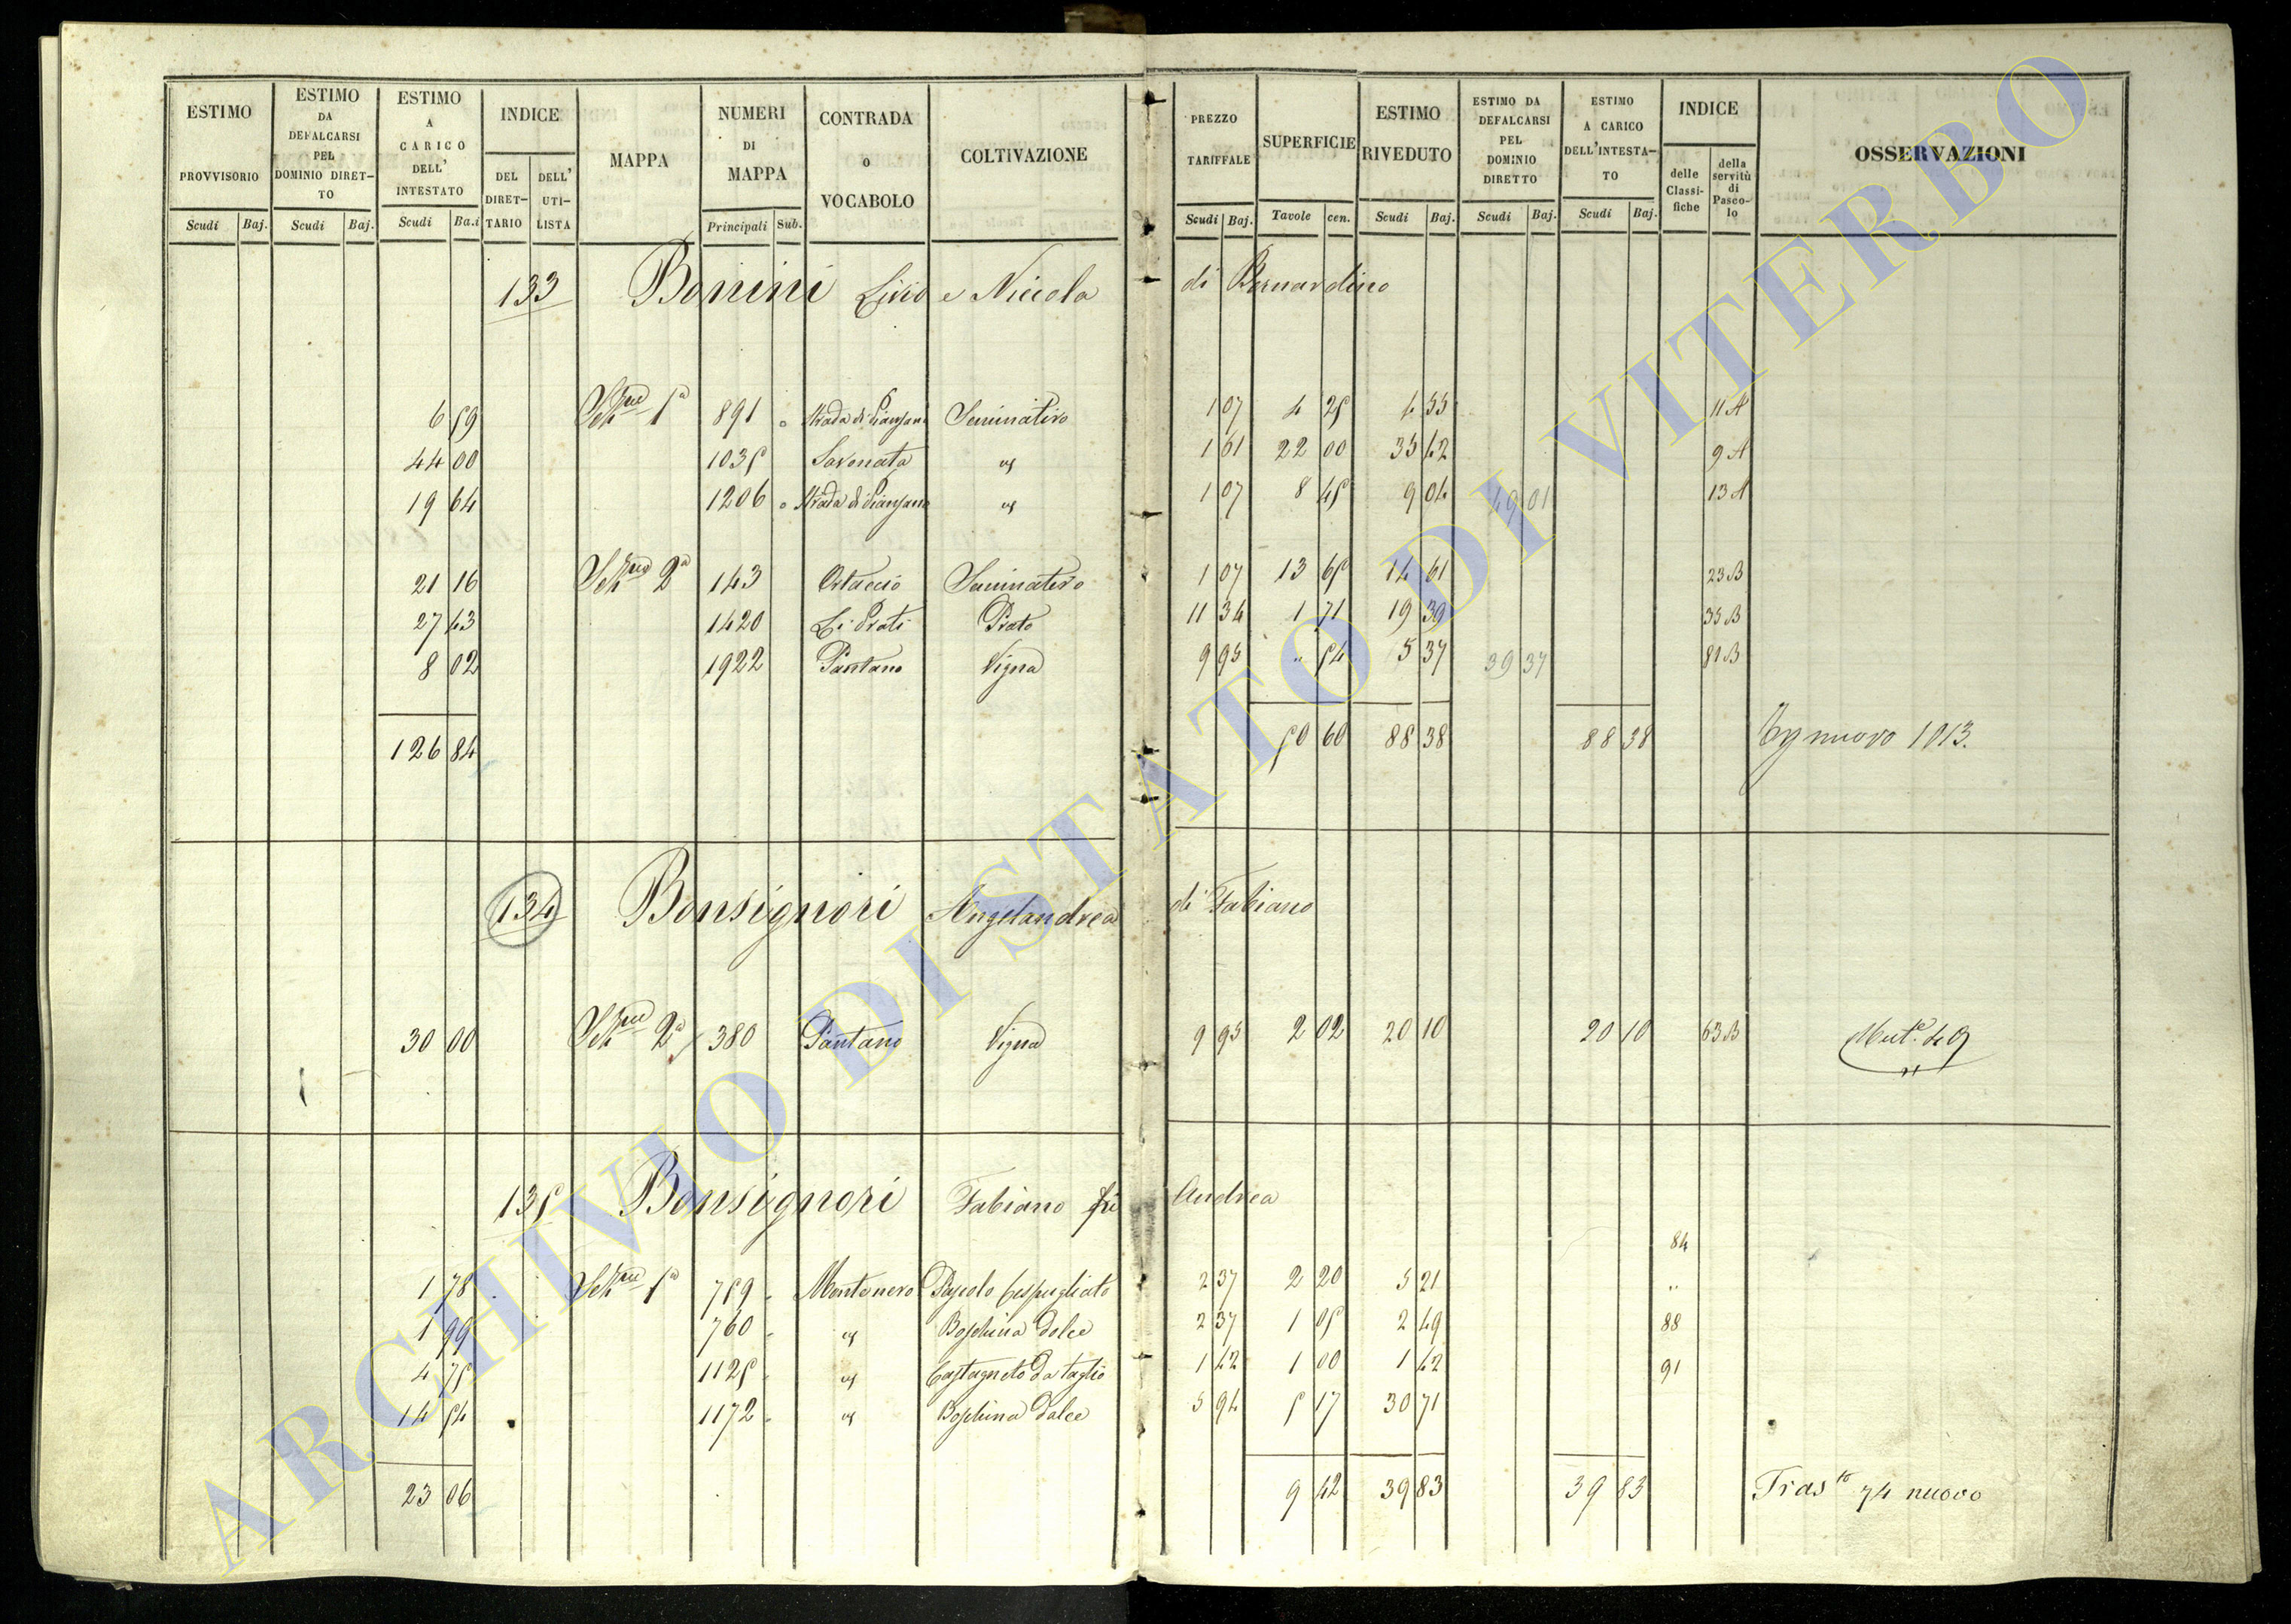 ESTIMO PROVVISORIO
ESTIMO DA DEFALCARSI PEL DOMINIO DIRETTO
ESTIMO A CARICO DELL' INTESTATO
INDICE
DEL DIRETTARIO
DELL' UTILISTA
MAPPA
NUMERI DI MAPPA
CONTRADA O VOCABOLO
COLTIVAZIONE
PREZZO TARIFFALE
SUPERFICIE
ESTIMO RIVEDUTO
ESTIMO DA DEFALCARSI PEL DOMINIO DIRETTO
ESTIMO A CARICO DELL'INTESTATO
INDICE
delle Classifiche
della servitù di Pascolo
OSSERVAZIONI
Scudi Baj. Scudi Baj. Scudi Ba.i Principali Sub. Scudi Baj. Tavole cen. Scudi Baj. Scudi Baj. Scudi Baj.
133 Bonini Livio e Niccola di Bernardino
6 59 Sez.ne 1a 891 Strada di Pianzano Seminativo 1 07 4 25 4 55 11 A
44 00 1035 Savonata 1 61 22 00 35 42 9 A
19 64 1206 Strada di Pianzano 1 07 8 45 9 04 49 01 13 A
21 16 Sez.ne 2a 143 Ortaccio Seminativo 1 07 13 65 14 61 23 B
27 43 1420 Li Prati Prato 11 34 1 71 19 39 35 B
8 02 1922 Pantano Vigna 9 95 " 54 5 37 39 37 81 B
126 84 50 60 88 38 88 38 nuovo 1013.
134 Bonsignori Angelandrea di Fabiano
30 00 Sez.ne 2a 380 Pantano Vigna 9 95 2 02 20 10 20 10 63 B
135 Bonsignori Fabiano fu Andrea
84
1 78 Sez.ne 1a 759 Montenero Pascolo Cespugliato 2 37 2 20 5 21 "
1 99 760 Boschina dolce 2 37 1 05 2 49 88
4 75 1125 Castagneto da taglio 1 42 1 00 1 42 91
14 54 1172 Boschina dolce 5 94 5 17 30 71
23 06 9 42 39 83 39 83 Trasto 74 nuovo
ARCHIVIO DI STATO DI VITERBO